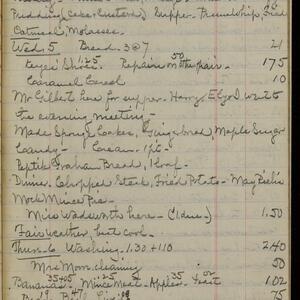 Pudding, Cake & Custard. Supper - Fried
Oatmeal, Molasses.
Wed. 5 Bread. 3@7 21
Shoes. 1.25 Repairs 50 on other pair. 1 75
Caramel Cereal 10
Mr Gilbert here for supper. Harry went to
the evening meeting
Made Sponge Cakes, Gingerbread, Maple Sugar
Candy - Cream. 1 pt.
Graham Bread, 1 loaf.
Dinner. Chopped Steak, Fried Potato.
Mock Mince Pie.
Miss Wadsworth here - 1.50
Fair weather, but cool.
Thur. 6 Washing. 1.30 + 110 2.40
Mrs Morn. cleaning 50
Bananas. Mince Meat. Apples. 35 Yeast 02 1 02
75